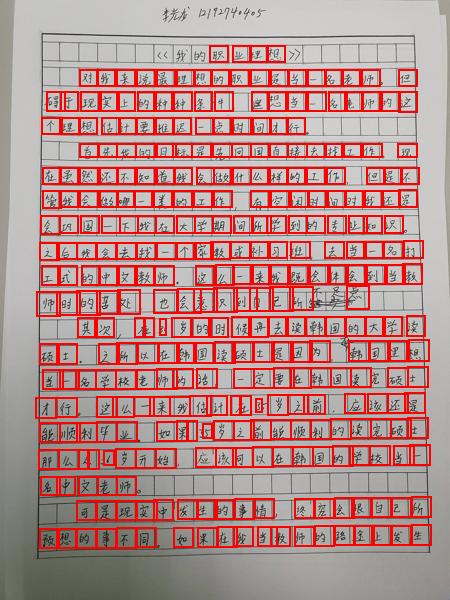 李 12192740405
《我的职业理想》
对我来说最理想的职业是当一名老师。但
碍于现实上的种种条件 想当一名老师的这
个理想估计要推迟一点时间才行。
首先我的目标是先回国直接去找工作。现
在虽然还不知道我会做什么样的工作,但是不
管我会做哪一类的工作,有空闲时间对我还是
会巩固一下我在大学期间所学到的专业知识。
之后我会去找一个家教或补习班,去当一名打
工式的中文教师。这么一来我既会体会到当教
师时的苦处 也会意识到自己所 不足点
其次,在 岁的时候再去读韩国的大学读
硕士。之所以在韩国读硕士是因为,在韩国里想
当一名学校老师的话 一定要在韩国读完硕士
才行。这么一来我估计在 岁之前,应该还是
能顺利毕业。如果 岁之前能顺利的读完硕士
那么 岁开始,应该可以在韩国的学校当一
名中文老师。
可是现实中发生的事情,终究会跟自己所
预想的事不同。如果在我当教师的路途上发生